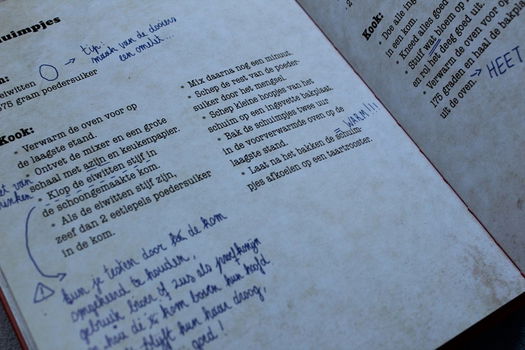 uimpjes
eiwitten
tip:
maak van de dooiers
een omelet...
175 gram poedersuiker
Kook:
• Verwarm de oven voor op
de laagste stand.
• Ontvet de mixer en een grote
schaal met azijn en keukenpapier.
• Klop de eiwitten stijf in
de schoongemaakte kom.
• Als de eiwitten stijf zijn,
zeef dan 2 eetlepels poedersuiker
in de kom.
• Mix daarna nog een minuut
• Schep de rest van de poeder-
suiker door het mengsel.
• Schep kleine hoopjes van het
schuim op een ingevette bakplaat.
• Bak de schuimpjes twee uur
in de voorverwarmde oven op de
laagste stand.
WARM!!!
• Laat na het bakken de schuim-
pjes afkoelen op een taartrooster.
kun je testen door de kom
omgekeerd te houden,
gebruik broer of zus als proefkonijn
kom boven hun hoofd
blijft hun haar droog,
goed!
Kook:
• Doe alle
in een kom.
• Kneed alles goed
• Stuif wat bloem op
en rol het deeg goed uit.
• Verwarm de oven voor op
175 graden en haal de bakpla
uit de oven.
HEET